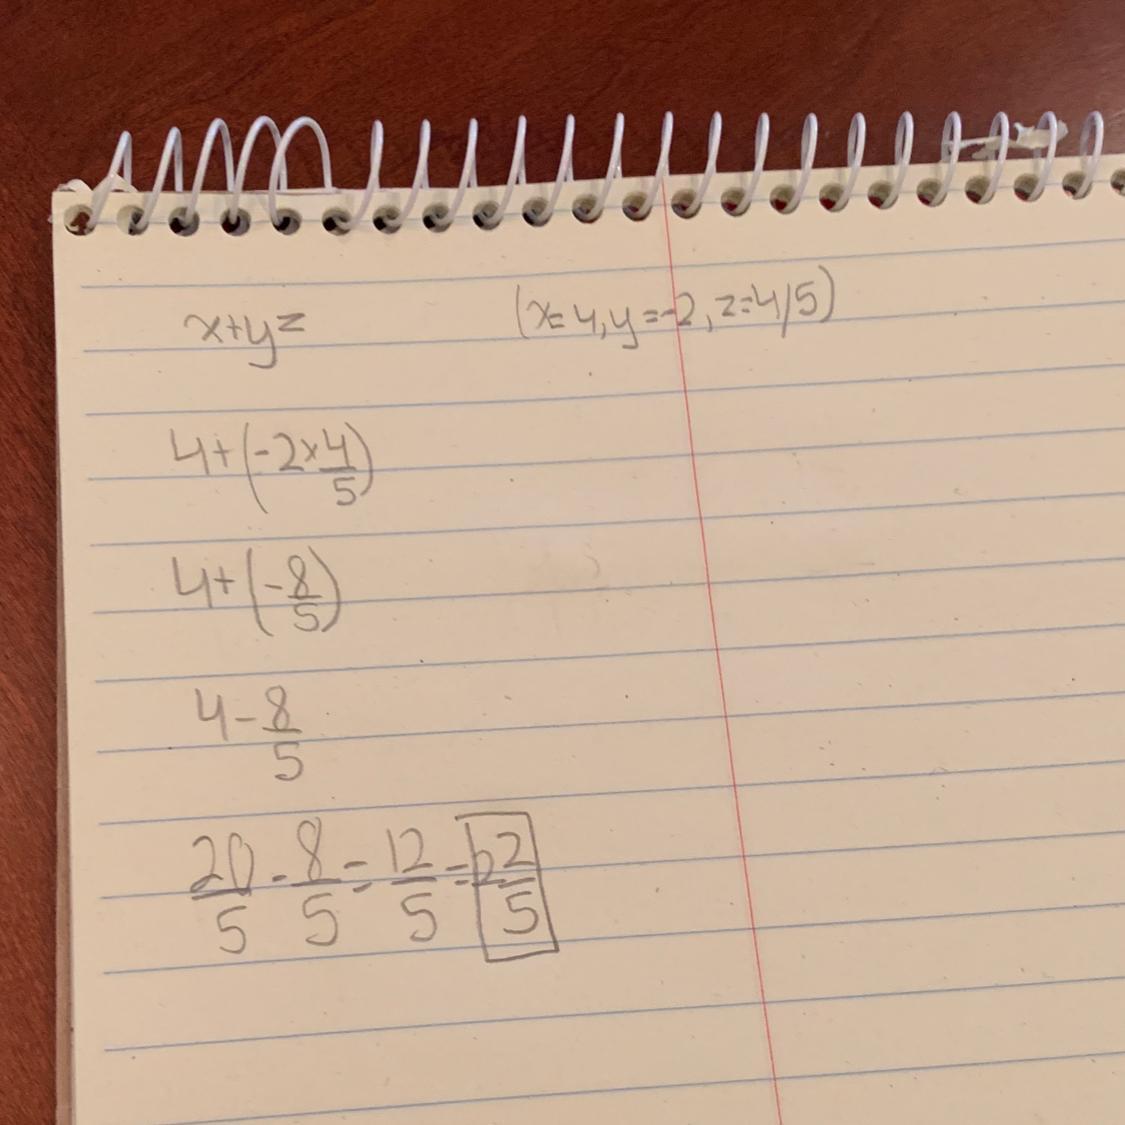 x+yz (x=4,y=-2,z=4/5)
4+(-2×4/5)
4+(-8/5)
4-8/5
20/5-8/5=12/5=2 2/5